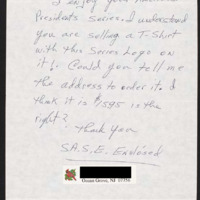 I enjoy your
Presidents Series. I understand
you are selling a T-Shirt
with this Series Logo on
it. Could you tell me
the address to order it. I
think it is $15.95 is this
right?
Thank you
S.A.S.E. Enclosed
Ocean Grove, NJ 07756